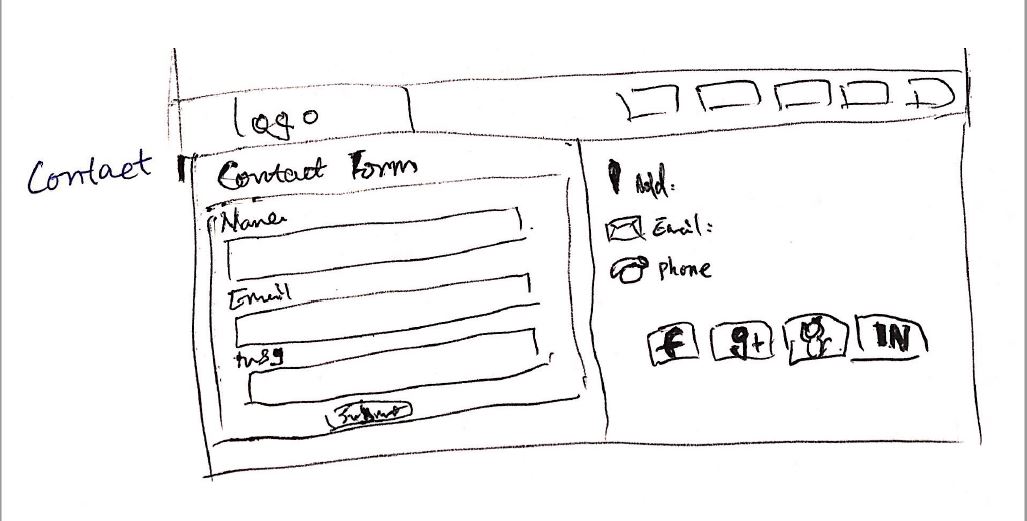 logo
Contact
Contact Form
Name
Email
msg
Submit
Add:
Email:
Phone
f
g+
IN